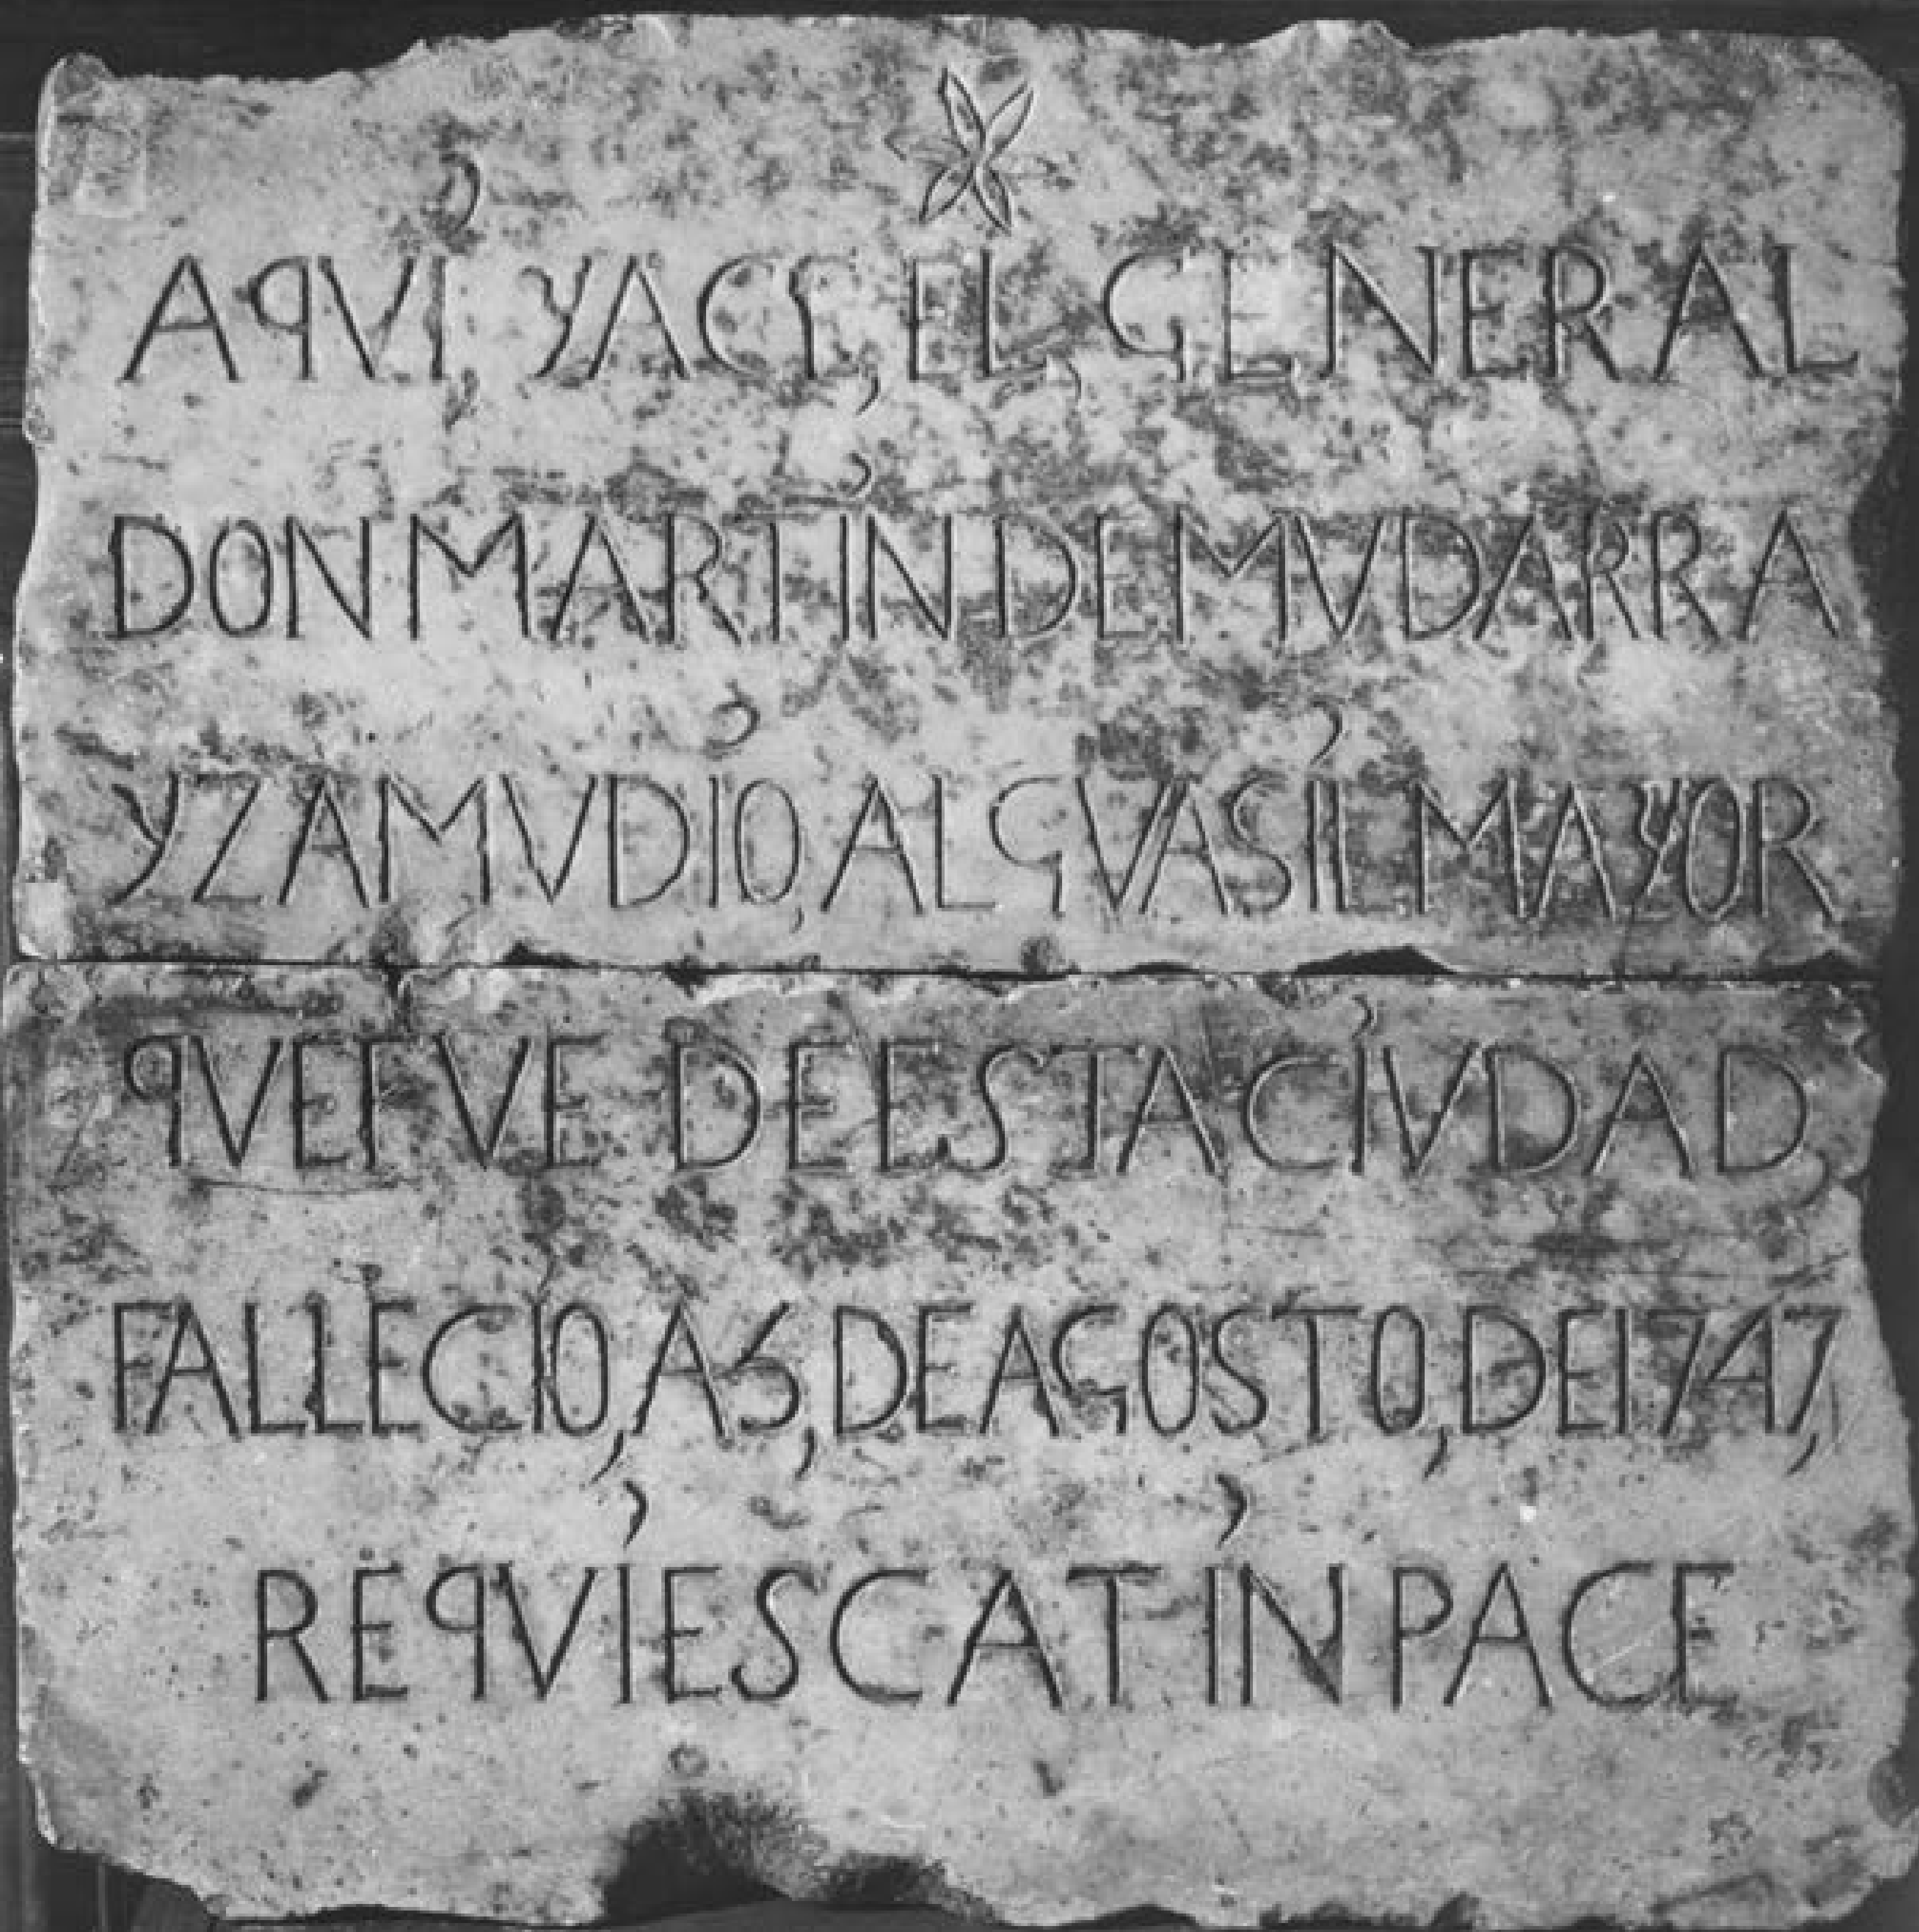 AQVI, YACE, EL, GENERAL
DON MARTIN DE MVDARRA
Y ZAMVDIO, ALGVASIL MAYOR
QVE FVE DE ESTA CIVDAD,
FALLECIO, A 5, DE AGOSTO, DE 1747,
REQVIESCAT IN PACE